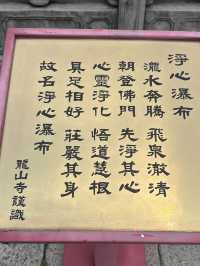 淨心瀑布
瀧水奔騰 飛泉澈清
朝登佛門 先淨其心
心靈淨化 悟道慧根
具足相好 莊嚴其身
故名淨心瀑布
龍山寺謹識